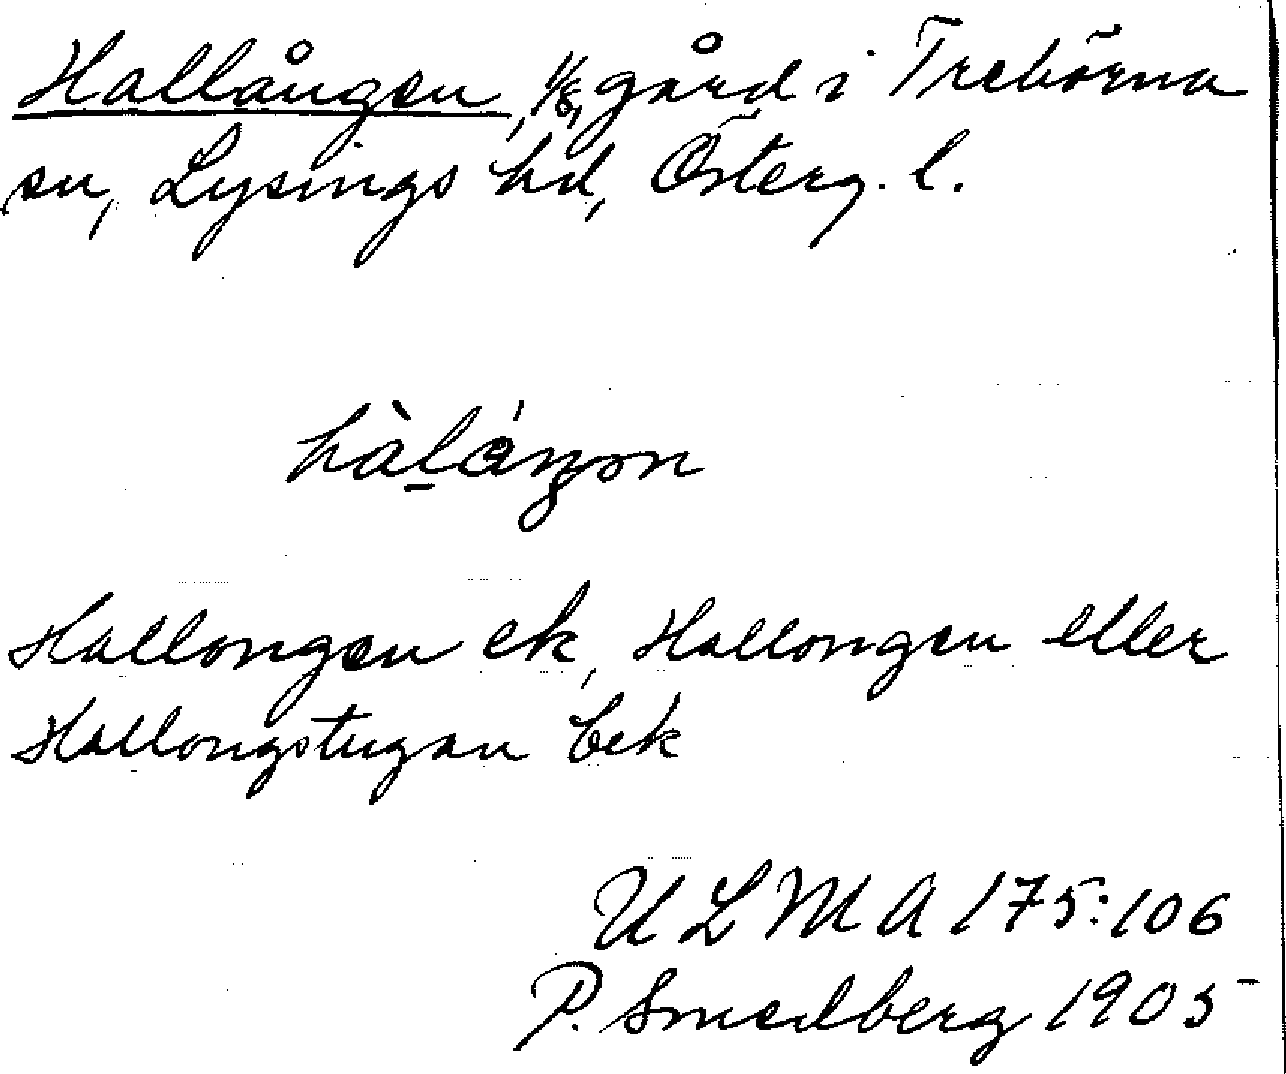 Hallången, 1/8, gård i Trehörna
sn, Lysings hd, Österg. l.
Hallongen ek, Hallongen eller
Hallongstugan bek
U L M A 175:106
P. Smedberg 1905